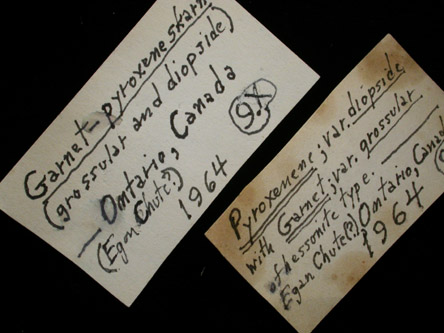 Garnet-pyroxene skarn
(grossular and diopside)
— Ontario, Canada
(Egan Chute?)
1964
9X
Pyroxenene; var. diopside
with Garnet; var. grossular
of hessonite type. —
Egan Chute(?) Ontario, Canada
1964